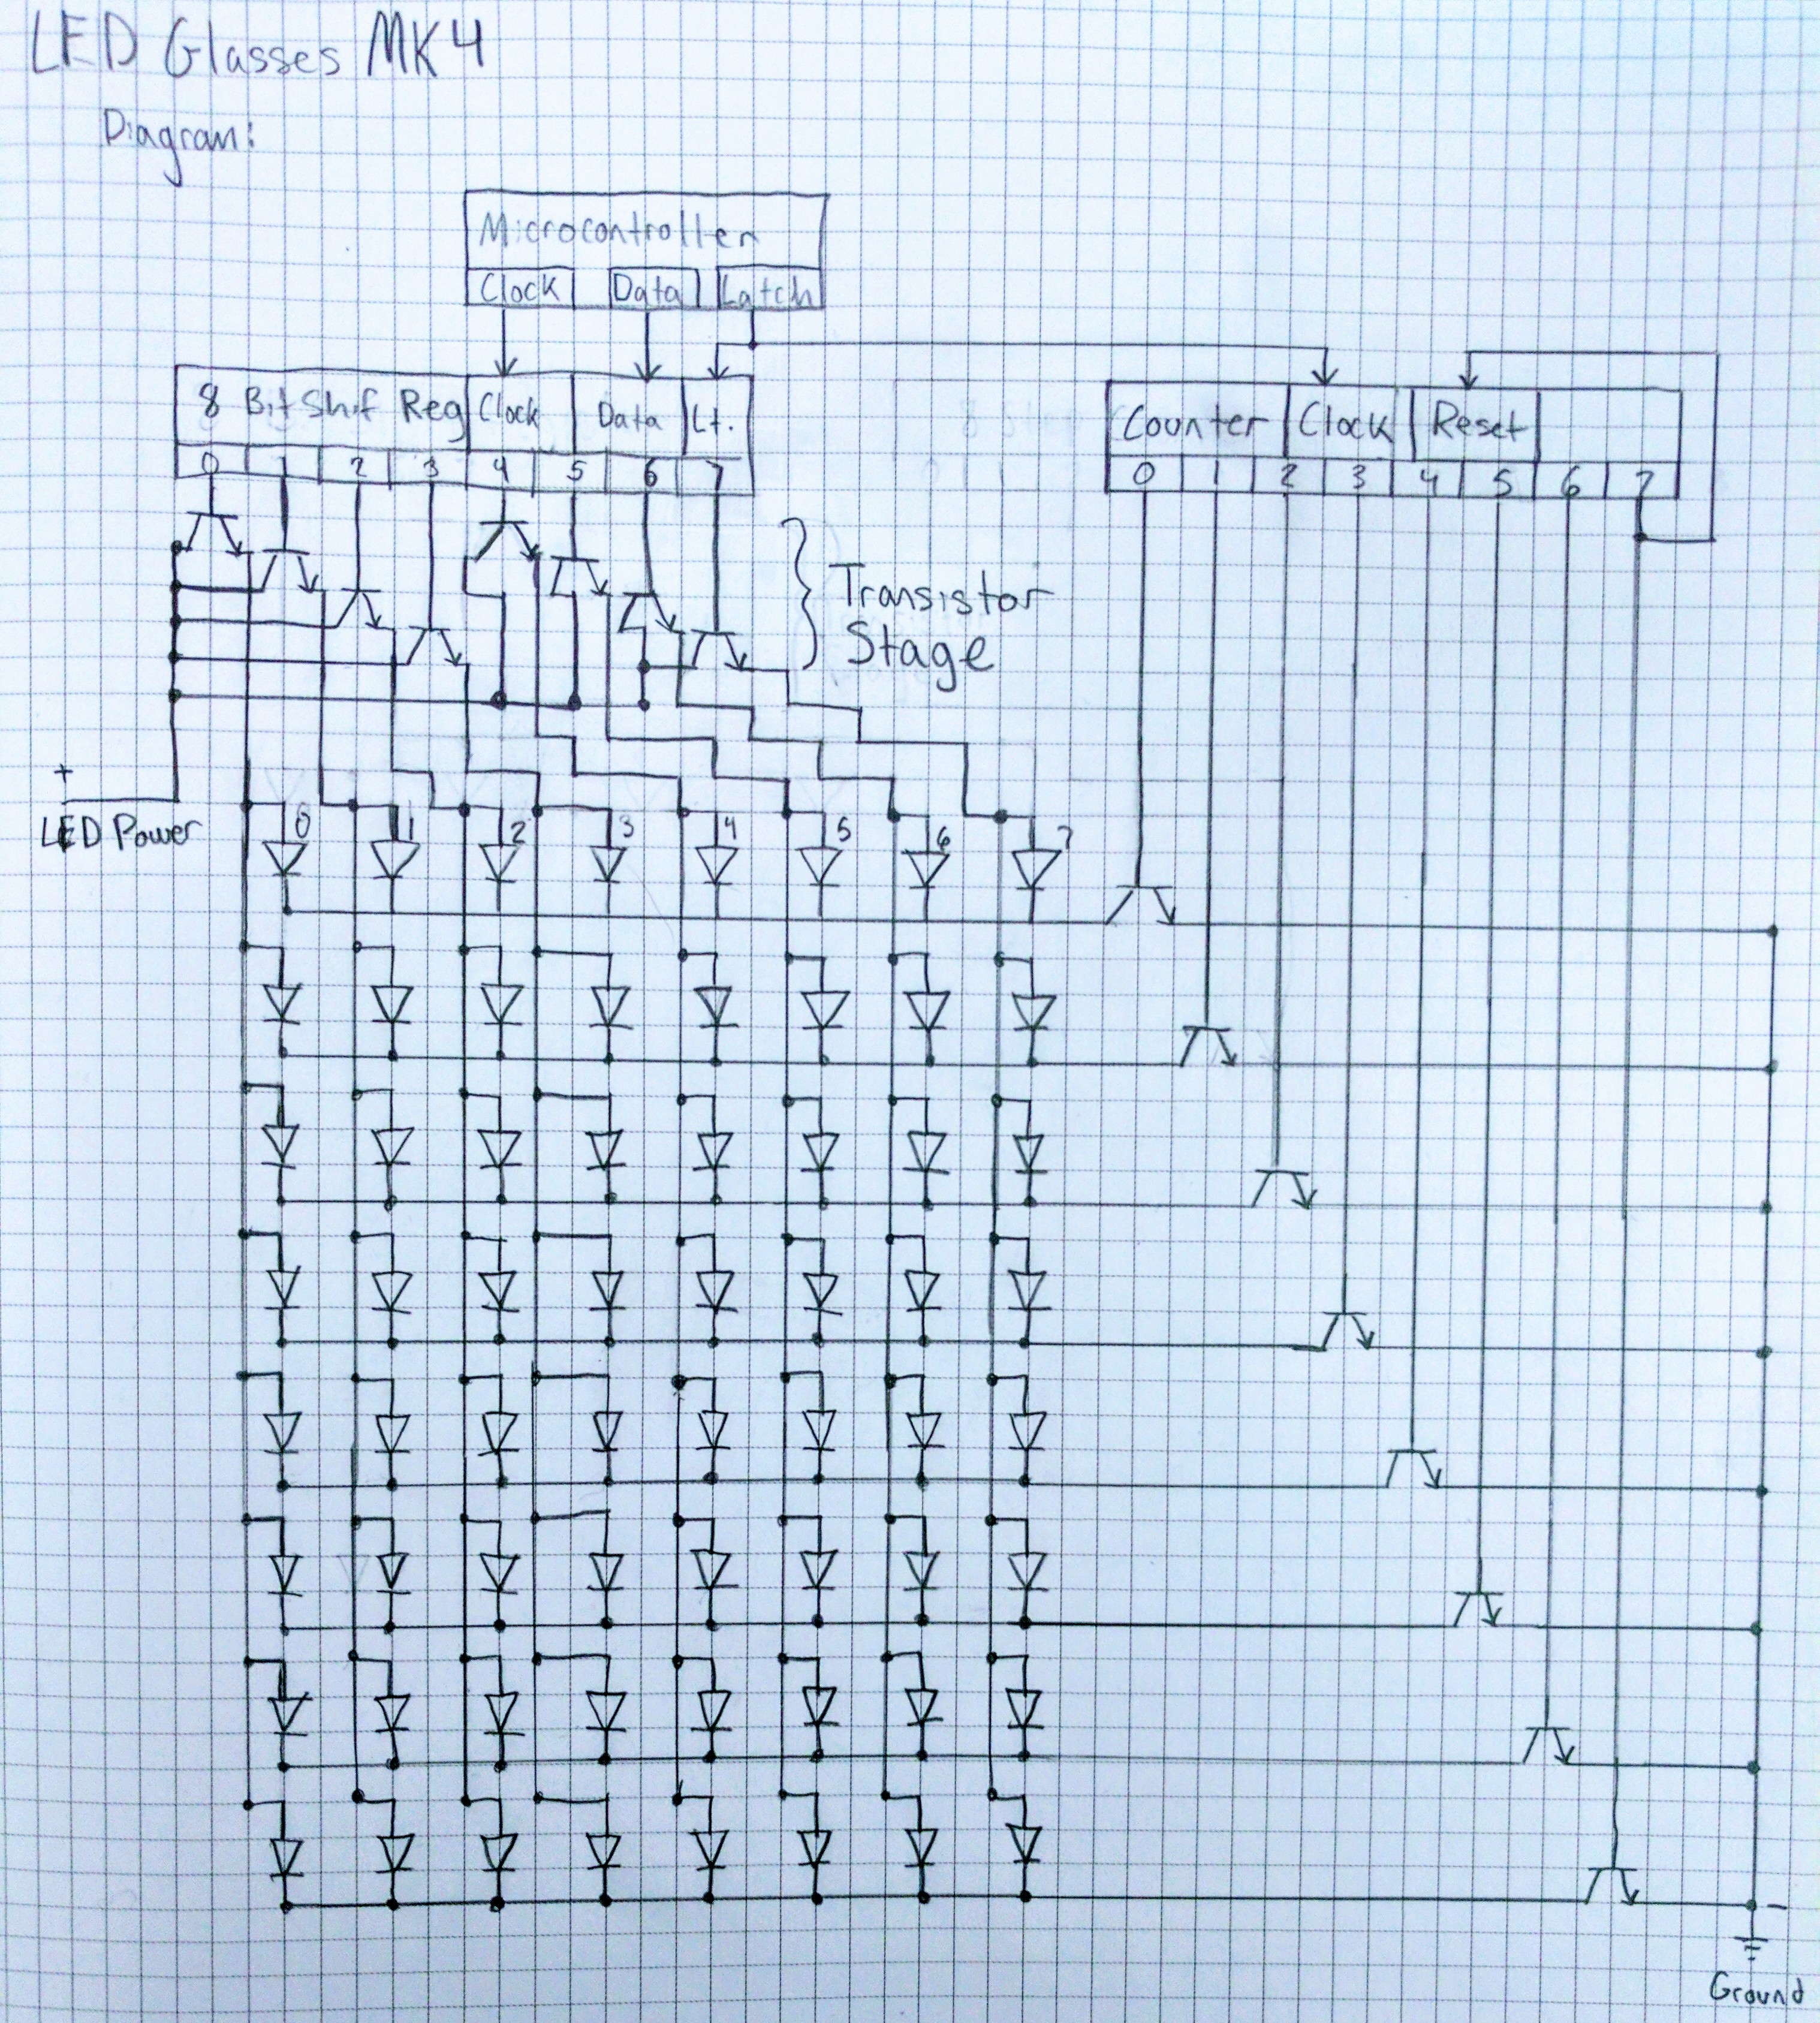 LED Glasses MK4
Diagram:
Microcontroller
Clock Data Latch
8 Bit Shif Reg Clock Data Lt.
0 1 2 3 4 5 6 7
Counter Clock Reset
0 1 2 3 4 5 6 7
Transistor
Stage
+
LED Power
0 1 2 3 4 5 6 7
-
Ground